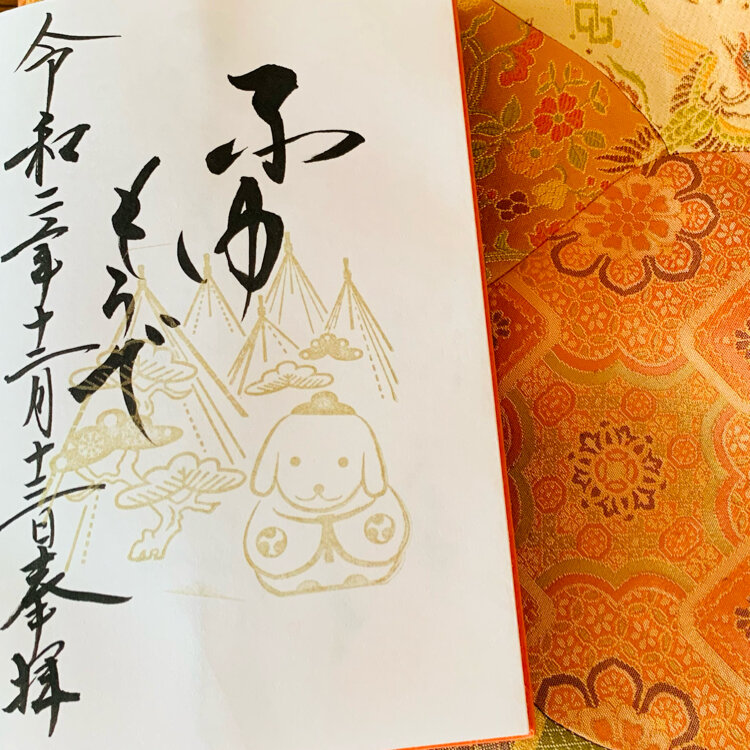 ふゆ
もうで
令和二年十二月十三日奉拝